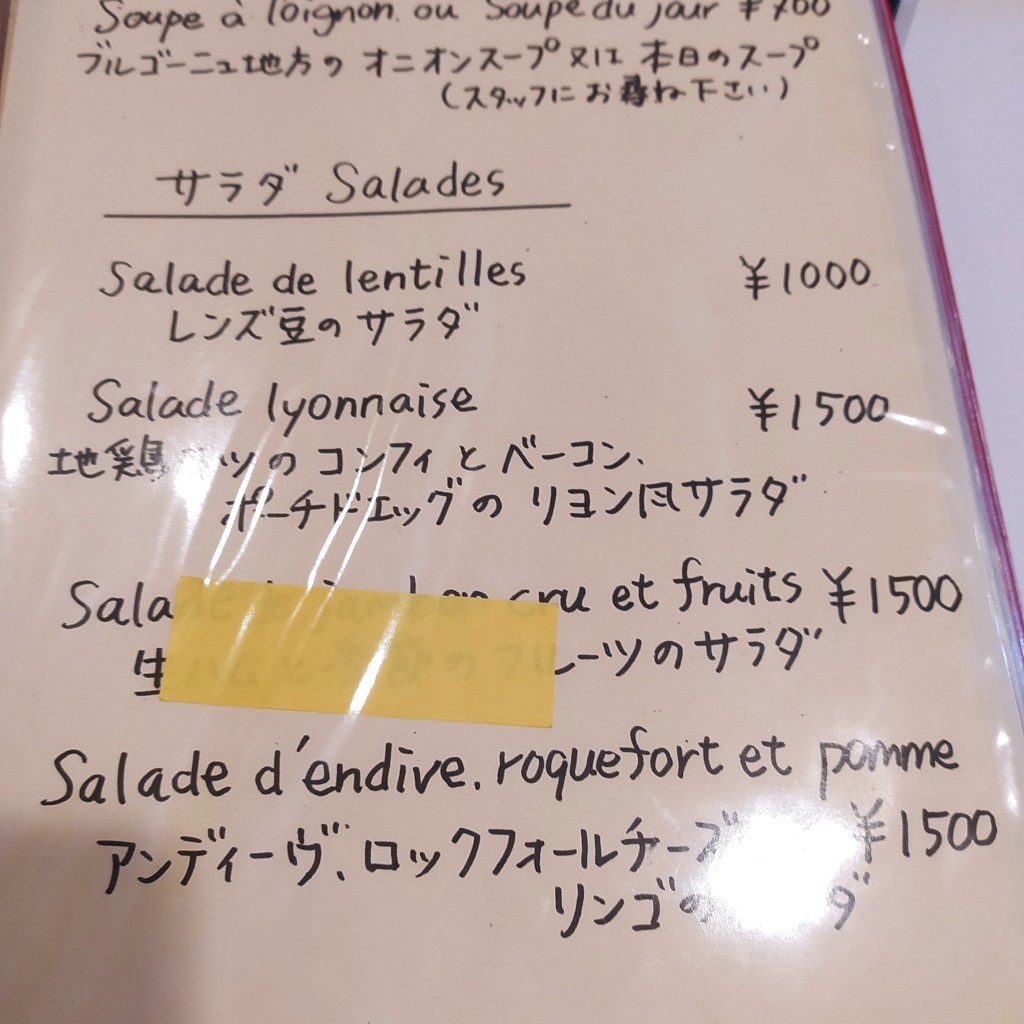 Soupe à l'oignon ou Soupe du jour ¥700
ブルゴーニュ地方の オニオンスープ 又は 本日のスープ
(スタッフにお尋ね下さい)
サラダ Salades
Salade de lentilles ¥1000
レンズ豆のサラダ
Salade lyonnaise ¥1500
地鶏 ツのコンフィとベーコン、
ポーチドエッグの リヨン風サラダ
Salade de jambon cru et fruits ¥1500
生ハムと季節のフルーツのサラダ
Salade d'endive, roquefort et pomme
アンディーヴ、ロックフォールチーズ ¥1500
リンゴの ダ